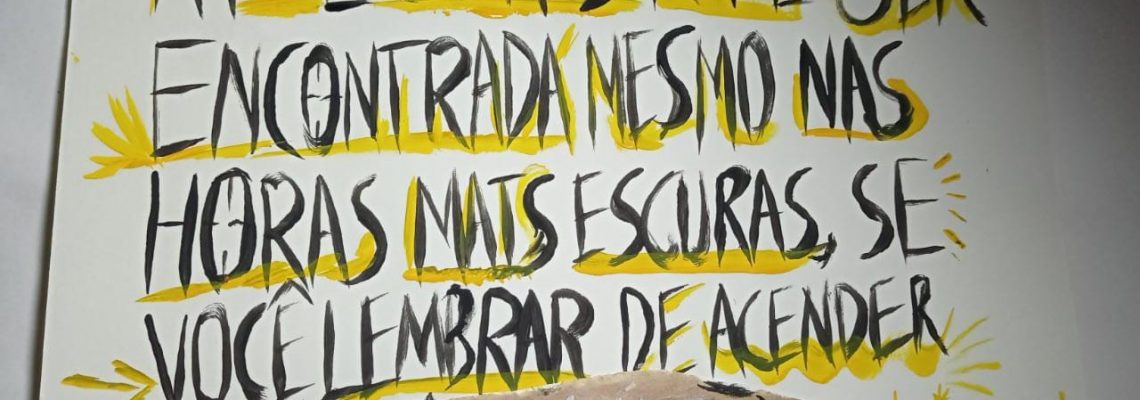 SER
ENCONTRADA MESMO NAS
HORAS MAIS ESCURAS, SE
VOCÊ LEMBRAR DE ACENDER